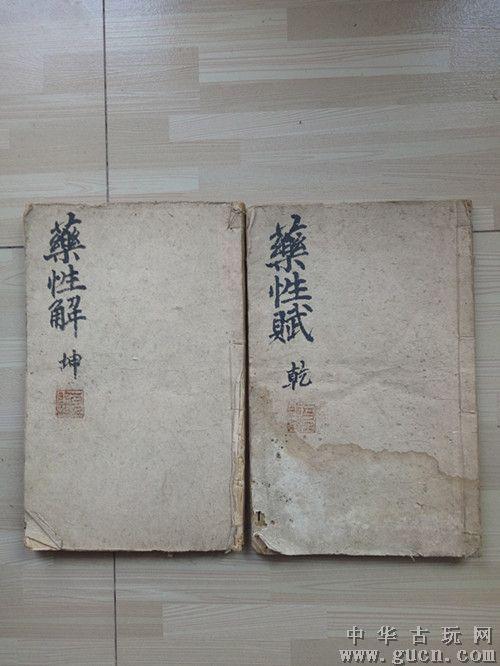 藥性解
坤
藥性賦
乾
中华古玩网
www.gucn.com